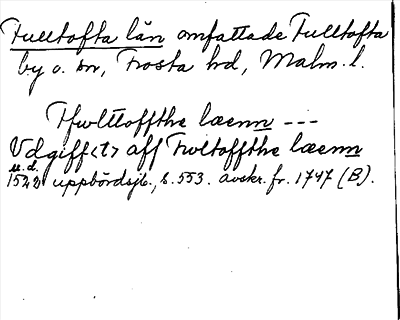 Fulltofta län omfattade Fulltofta
by o. sn, Frosta hd, Malm. l.
Ffwlttoffthe læenn ---
Vdgiff<t> aff Fwltoffthe læenn
u.d.
1522 uppbördsjb., s. 553. avskr. fr. 1747 (B).